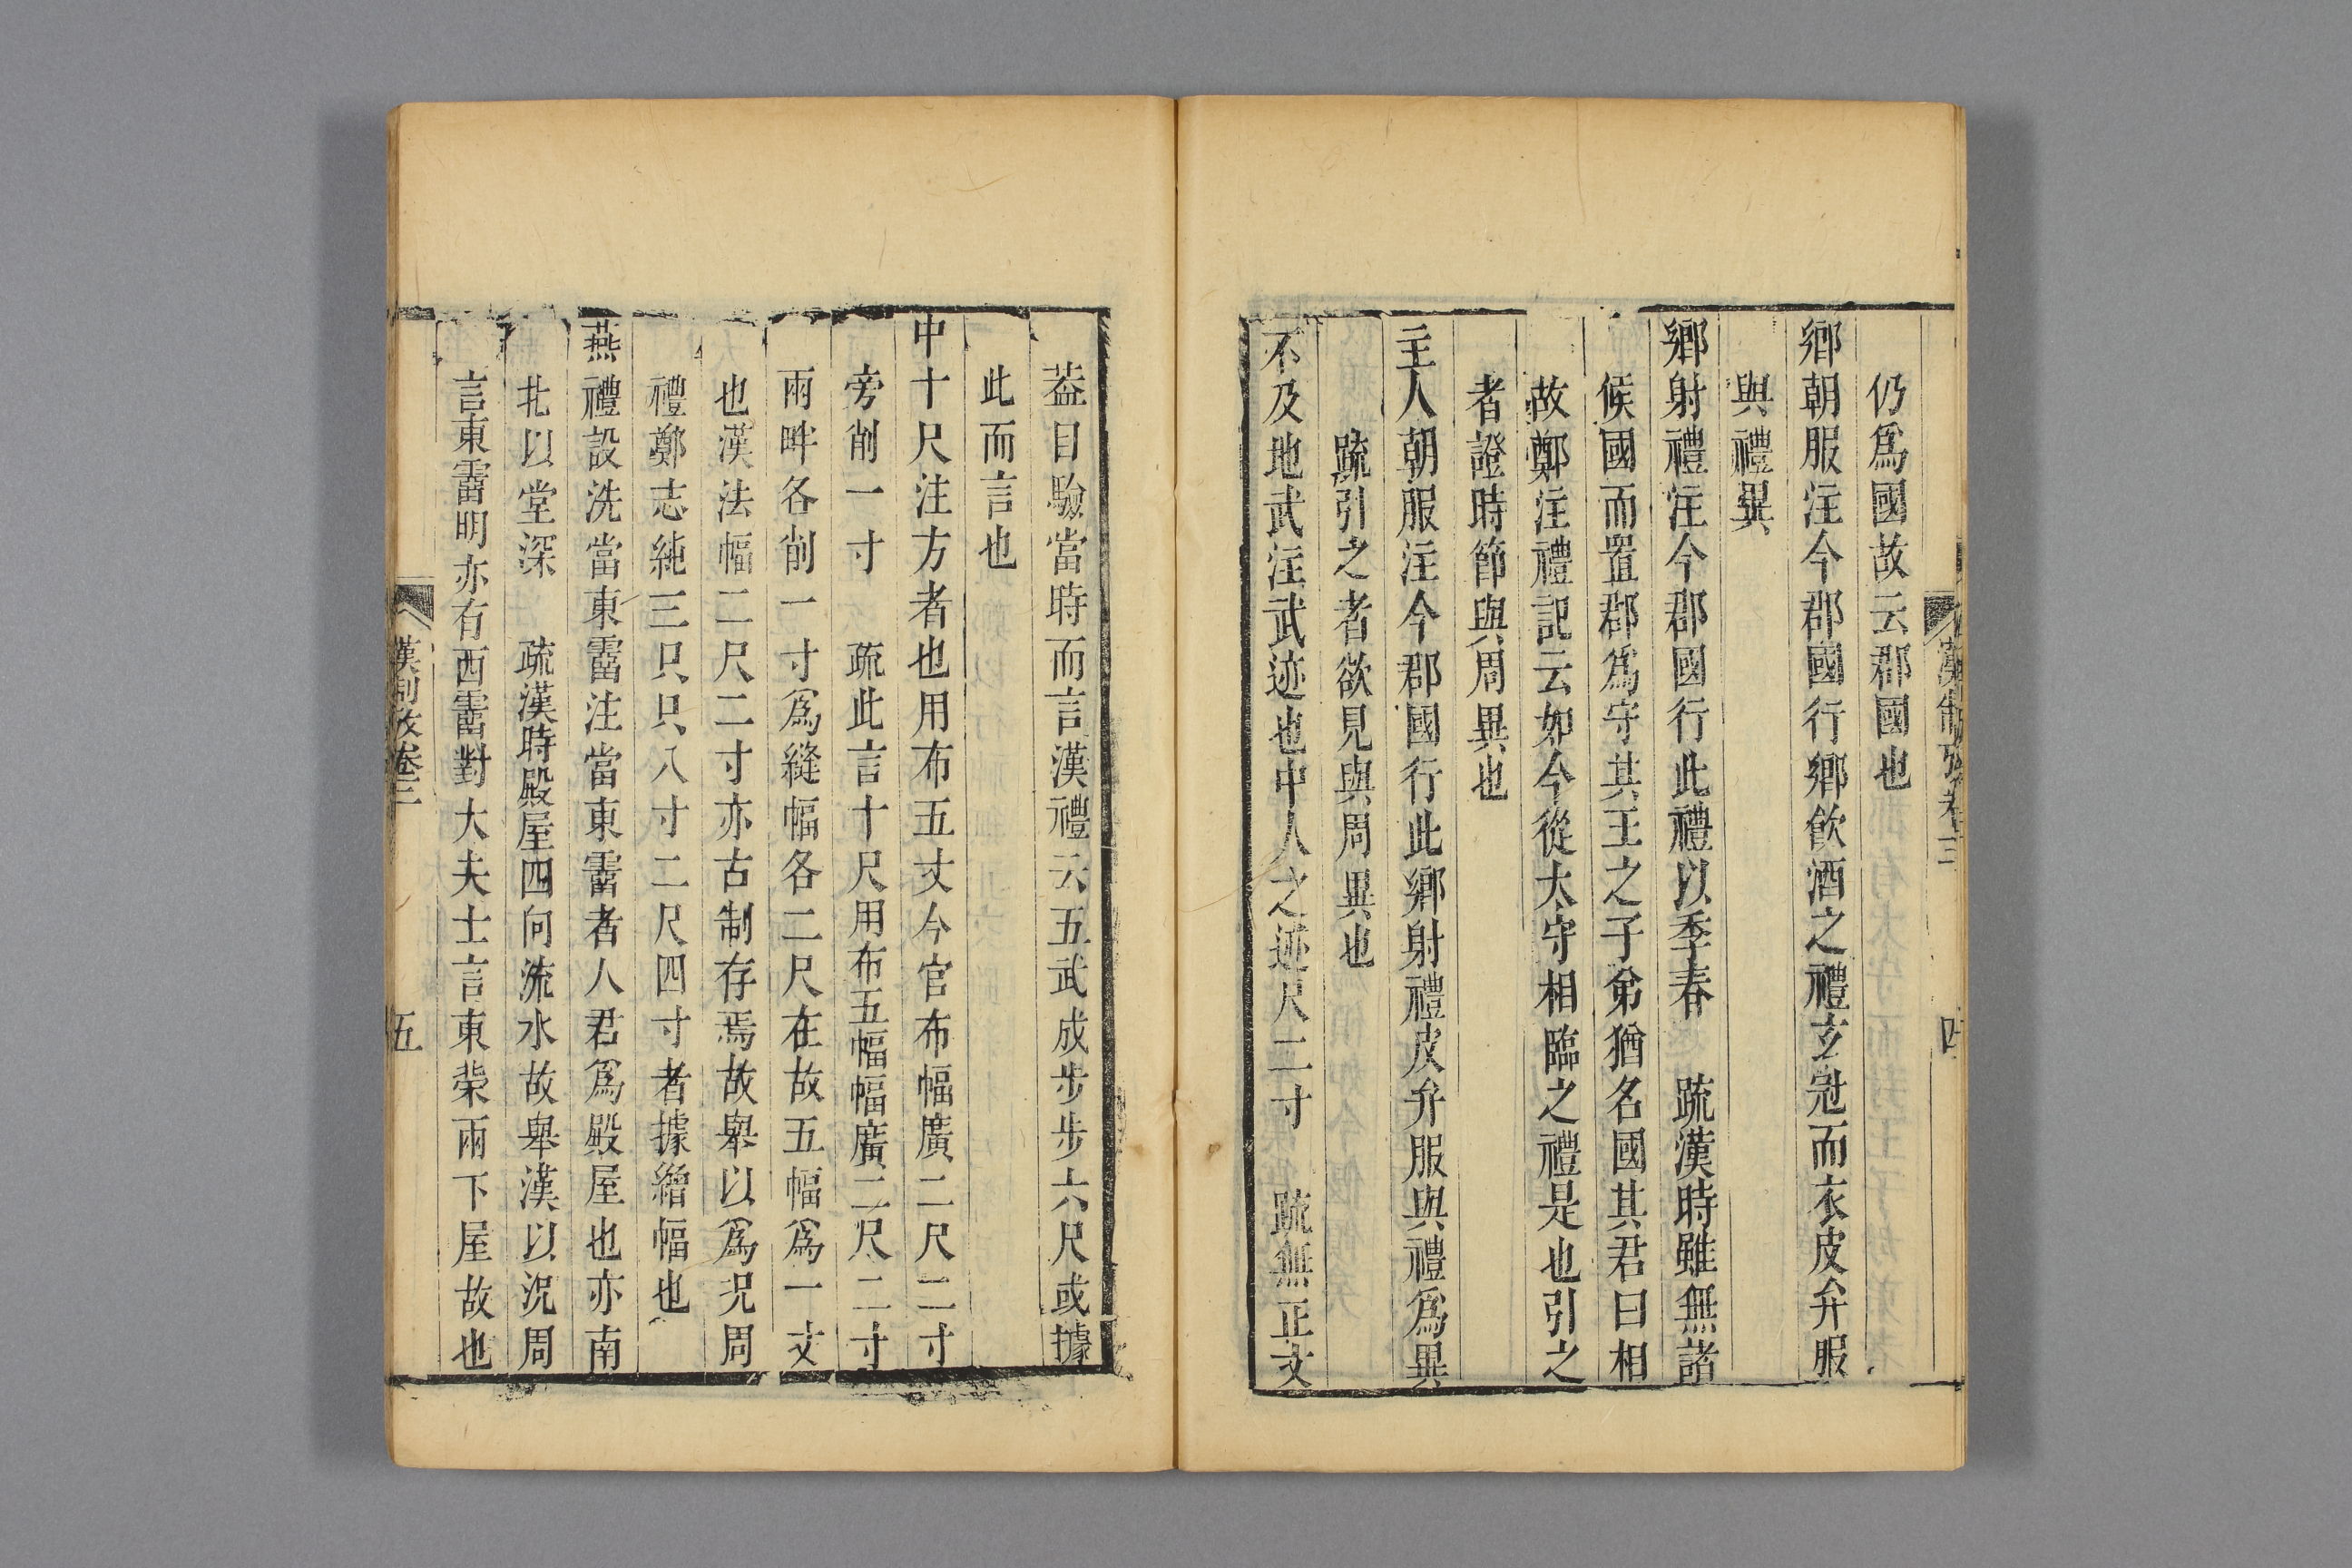 漢制攷卷三 四
仍爲國故云郡國也
鄉朝服注今郡國行鄉飲酒之禮玄冠而衣皮弁服
與禮異
鄉射禮注今郡國行此禮以季春 疏漢時雖無諸
候國而置郡爲守其王之子弟猶名國其君曰相
故鄭注禮記云如今從太守相臨之禮是也引之
者證時節與周異也
主人朝服注今郡國行此鄉射禮皮弁服與禮爲異
疏引之者欲見與周異也
不及地武注武迹也中人之迹尺二寸 疏無正文
葢目驗當時而言漢禮云五武成步步六尺或據
此而言也
中十尺注方者也用布五丈今官布幅廣二尺二寸
旁削一寸 疏此言十尺用布五幅幅廣二尺二寸
兩畔各削一寸爲縫幅各二尺在故五幅爲一丈
也漢法幅二尺二寸亦古制存焉故舉以爲況周
禮鄭志純三只只八寸二尺四寸者據繒幅也
燕禮設洗當東霤注當東霤者人君爲殿屋也亦南
北以堂深 疏漢時殿屋四向流水故舉漢以況周
言東霤明亦有西霤對大夫士言東榮兩下屋故也
漢制攷卷三 五